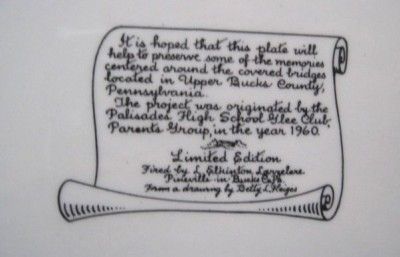 It is hoped that this plate will
help to preserve some of the memories
centered around the covered bridges
located in Upper Bucks County,
Pennsylvania.
The project was originated by the
Palisades High School Glee Club
Parents Group, in the year 1960.
Limited Edition
Fired by L. Elkinton Larzelere
Pineville in Bucks
From a drawing by Betty L.